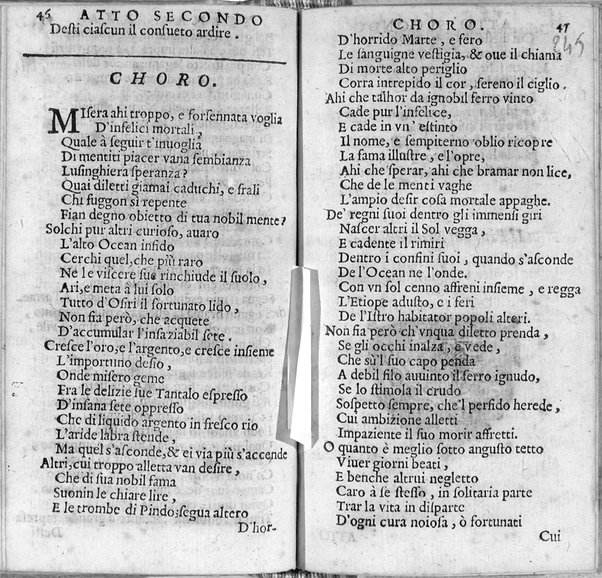 46 ATTO SECONDO
Desti ciascun il consueto ardire.
CHORO.
MIsera ahi troppo, e forsennata voglia
D'infelici mortali,
Quale à seguir t'inuoglia
Di mentiti piacer vana sembianza
Lusinghiera speranza?
Quai diletti giamai caduchi, e frali
Chi fuggon sì repente
Fian degno obietto di tua nobil mente?
Solchi pur altri curioso, auaro
L'alto Ocean infido
Cerchi quel, che più raro
Ne le viscere sue rinchiude il suolo,
Ari, e meta à lui solo
Tutto d'Osiri il fortunato lido,
Non fia però, che acquete
D'accumular l'insaziabil sete.
Cresce l'oro, e l'argento, e cresce insieme
L'importuno desio,
Onde misero geme
Fra le delizie sue Tantalo espresso
D'insana sete oppresso
Che di liquido argento in fresco rio
L'aride labra stende,
Ma quel s'asconde, & ei via più s'accende
Altri, cui troppo alletta van desire,
Che di sua nobil fama
Suonin le chiare lire,
E le trombe di Pindo; segua altero
D'hor-
CHORO. 47
245
D'horrido Marte, e fero
Le sanguigne vestigia, & oue il chiama
Di morte alto periglio
Corra intrepido il cor, sereno il ciglio.
Ahi che talhor da ignobil ferro vinto
Cade pur l'infelice,
E cade in vn' estinto
Il nome, e sempiterno oblio ricopre
La fama illustre, e l'opre,
Ahi che sperar, ahi che bramar non lice,
Che de le menti vaghe
L'ampio desir cosa mortale appaghe.
De' regni suoi dentro gli immensi giri
Nascer altri il Sol vegga,
E cadente il rimiri
Dentro i confini suoi, quando s'asconde
De l'Ocean ne l'onde.
Con vn sol cenno affreni insieme, e regga
L'Etiope adusto, e i feri
De l'Istro habitator popoli alteri.
Non fia però ch'vnqua diletto prenda,
Se gli occhi inalza, e vede,
Che sù'l suo capo penda
A debil filo auuinto il ferro ignudo,
Se lo stimola il crudo
Sospetto sempre, che'l perfido herede,
Cui ambizione alletti
Impaziente il suo morir affretti.
O quanto è meglio sotto angusto tetto
Viuer giorni beati,
E benche altrui negletto
Caro à se stesso, in solitaria parte
Trar la vita in disparte
D'ogni cura noiosa, ò fortunati
Cui